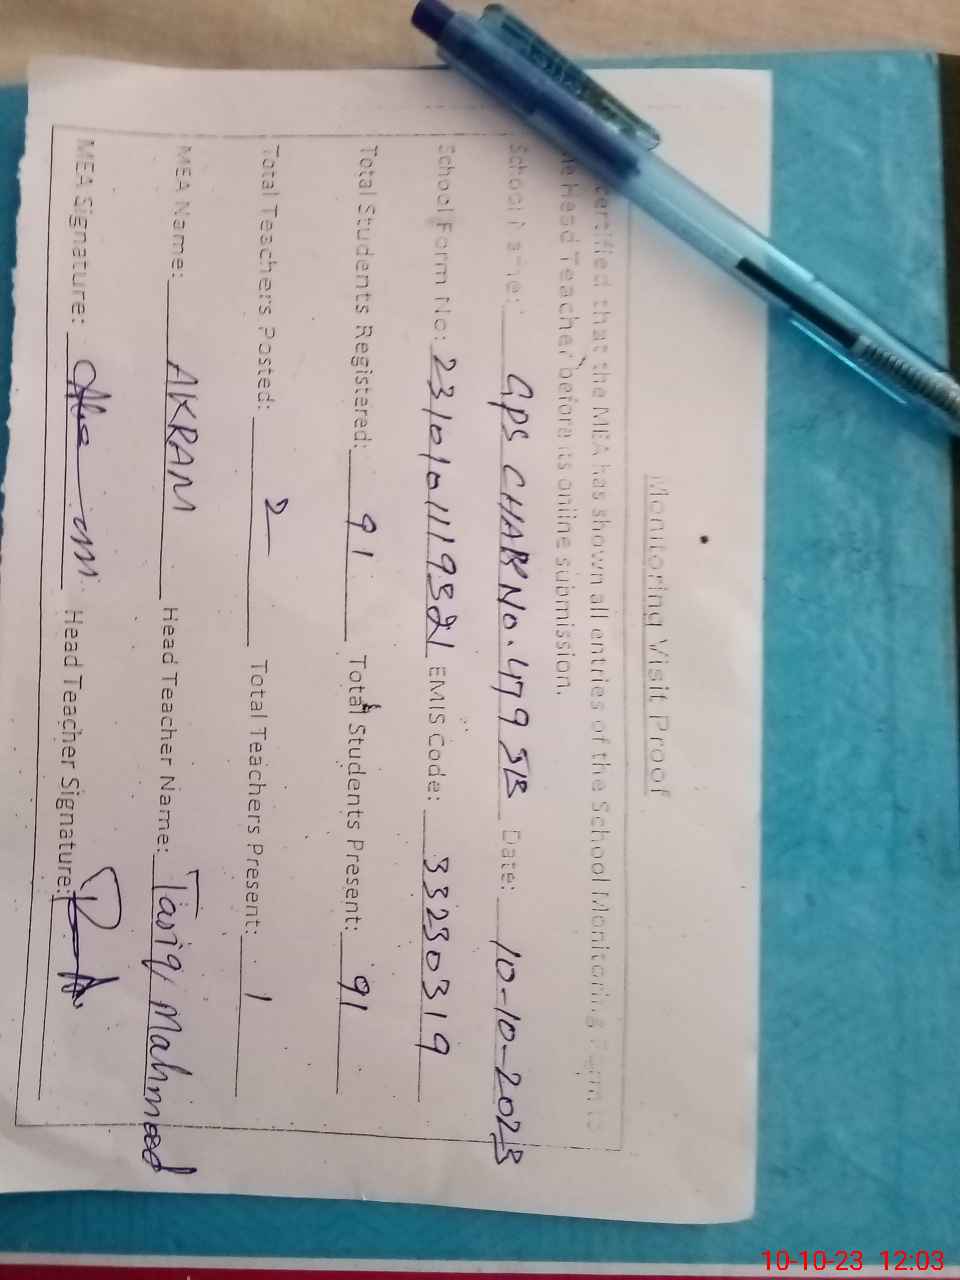 Monitoring Visit Proof
certified that the MEA has shown all entries of the School Monitoring Form to
the Head Teacher before its online submission.
School Name: GPS CHAK No. 479 JB Date: 10-10-2023
School Form No: 2310101119321 EMIS Code: 33230319
Total Students Registered: 91 Total Students Present: 91
Total Teachers Posted: 2 Total Teachers Present: 1
MEA Name: AKRAM Head Teacher Name: Tariq Mahmood
MEA Signature: Head Teacher Signature:
10-10-23 12:03